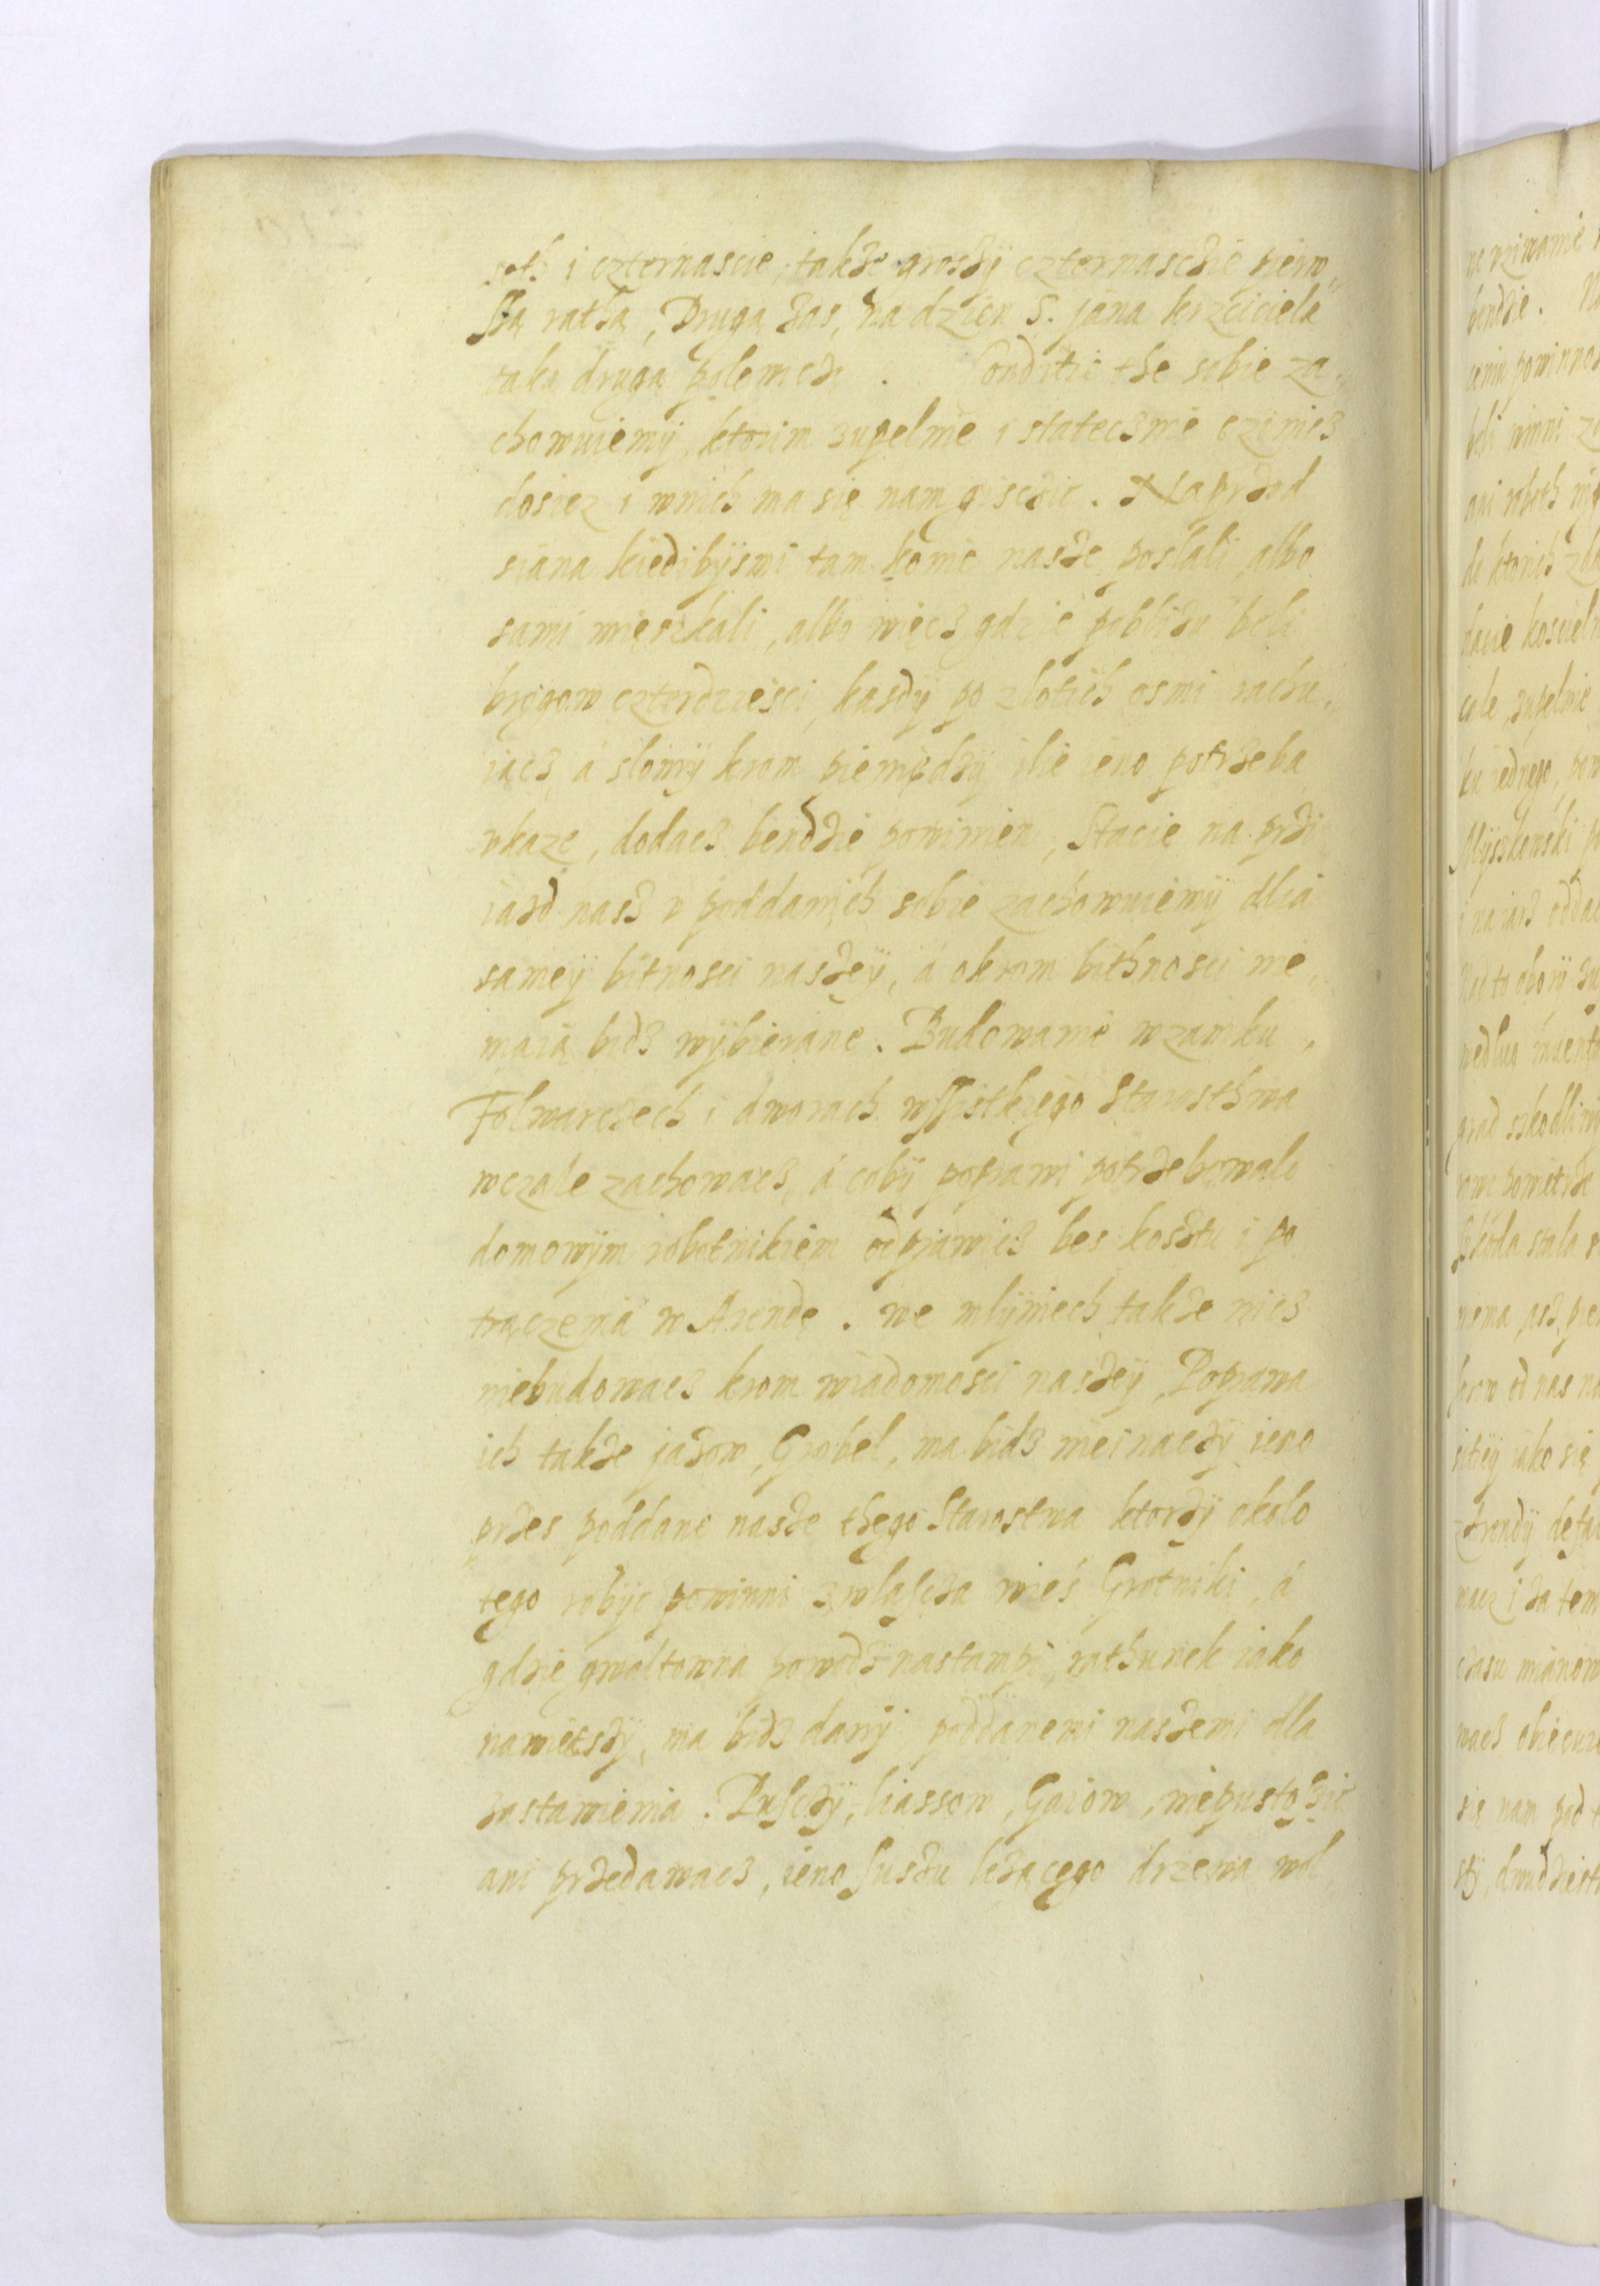 set i czternascie, takze groszÿ czternasczie pierw„
sза rathą, Drugą zas, na dzien S. jana krzciciela
taką drugą polowiczą. Conditie the sobie za„
chowuiemÿ, ktorim zupelnie i statecznie czinicz
dosicz i wnich ma się nam isczic. Naprzod
siana kiedibÿsmi tam konie nasze poslali albo
sami mięszkali, albo więcz gdzie poblizu beli
brogow czterdziesci, kazdÿ po zlotich osmi rachu„
iącz, á slomÿ krom pieniędzÿ ilie ieno potrzeba
vkaze, dodacz bendzie powinien, Stacie na przi
iazd nasz v poddanich sobie zachowuiemÿ dlia
sameÿ bitnosci naszeÿ, á okrom bithnosci nie„
maią bidz wÿbierane. Budowanie wzamku,
Folwarczech i dworach wssistkiego Starosthwa
wczale zachowacz, á cobÿ poprawi potrzebowalo
domowÿm robotnikiem odprawicz bes kosztu i po
trączenia w Arende. we mlÿniech takze nicz
niebudowacz krom wiadomosci naszeÿ, Poprawa
ich takze jazow, Grobel, ma bidz nieinaczÿ ieno
przes poddane nasze thego Starostwa ktorzÿ okolo
tego robÿc powinni zwlascza wieś Grotniki, á
gdzie gwaltowna powodz nastampi, rathunek iako
nawietszÿ, ma bidz danÿ poddanemi naszemi dla
zastawienia. Pusczÿ, liassow, Gaiow, niepustoszic
ani przedawacz, ieno suszu lezącego drzewa wol